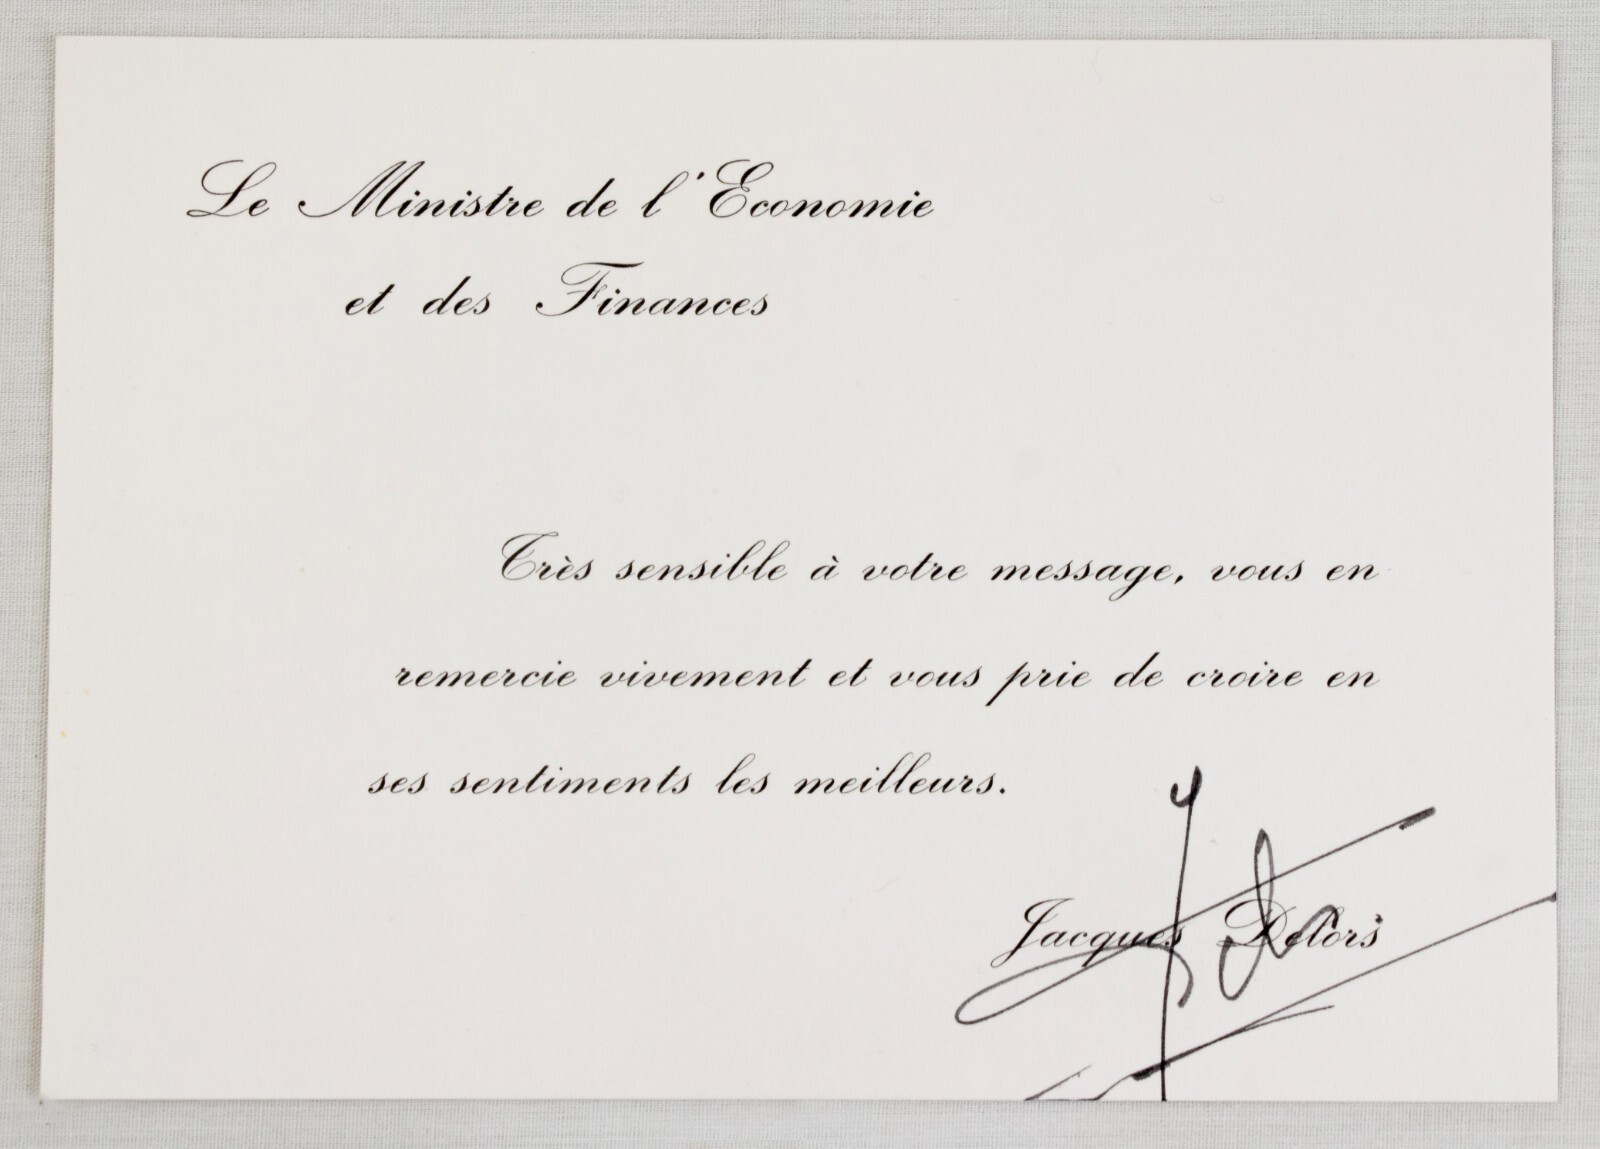 Le Ministre de l'Economie
et des Finances
Très sensible à votre message, vous en
remercie vivement et vous prie de croire en
ses sentiments les meilleurs.
Jacques Delors